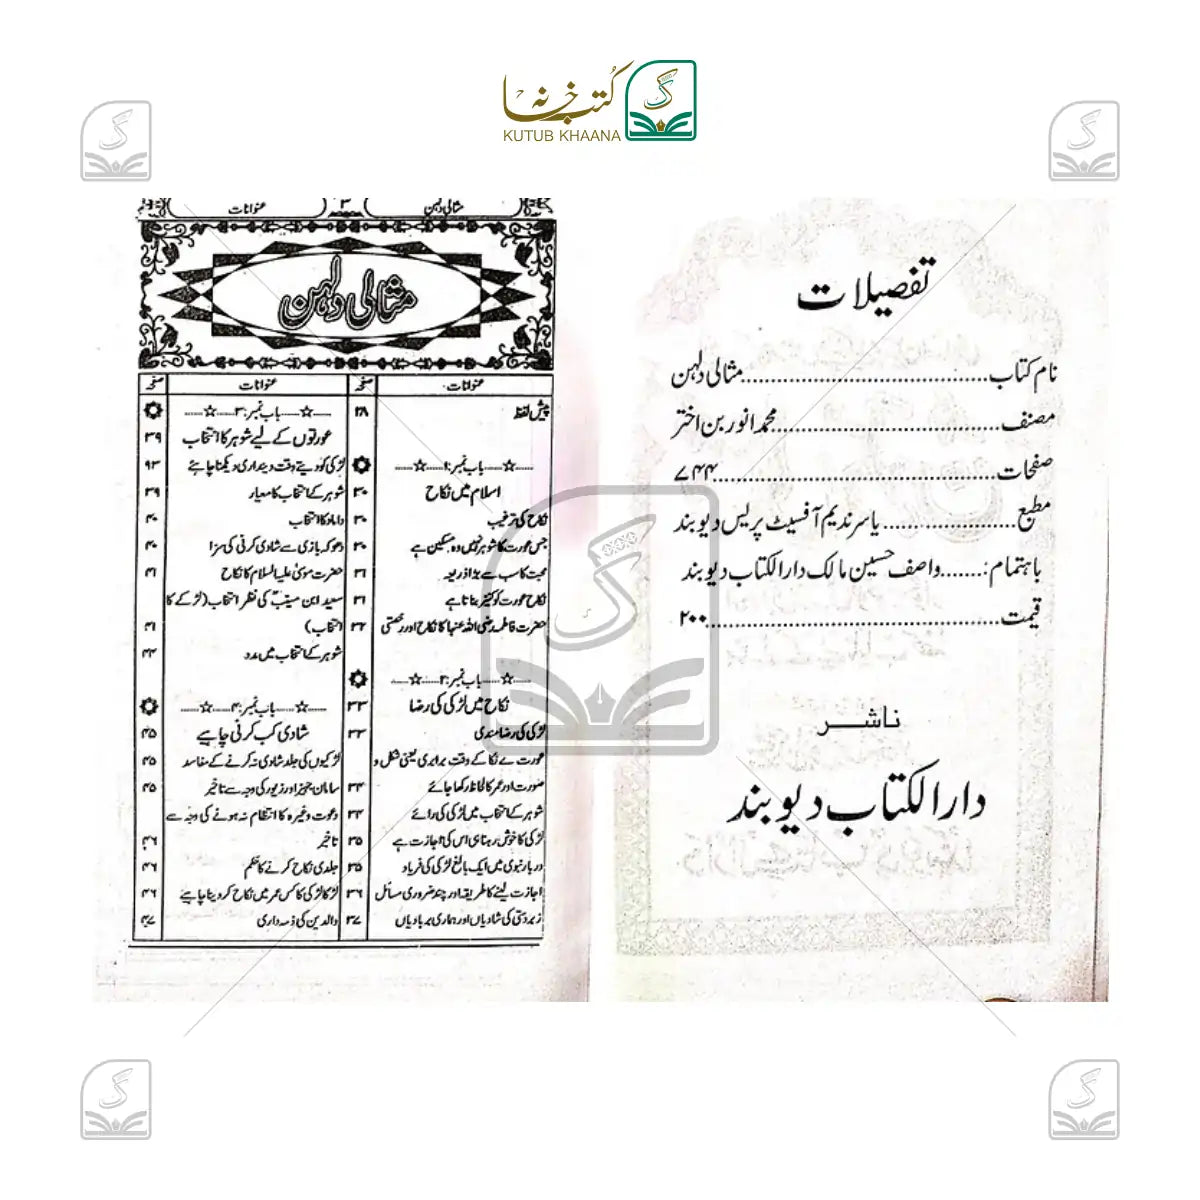 کتب خانہ
KUTUB KHAANA
تفصیلات
نام کتاب........................................مثالی دلہن
مصنف....................................محمد انور بن اختر
صفحات..............................................۷۴۴
مطبع......................یاسر ندیم آفسیٹ پریس دیوبند
باہتمام:.......واصف حسین مالک دارالکتاب دیوبند
قیمت................................................۲۰۰
ناشر
دارالکتاب دیوبند
مثالی دلہن ۳ عنوانات
مثالی دلہن
عنوانات صفحہ
پیش لفظ ۲۸
......☆......باب نمبر:۱......☆......
اسلام میں نکاح ۳۰
نکاح کی ترغیب ۳۰
جس عورت کا شوہر نہیں وہ مسکین ہے ۳۰
محبت کا سب سے بڑا ذریعہ ۳۱
نکاح عورت کو کثیر بناتا ہے ۳۱
حضرت فاطمہ رضی اللہ عنہا کا نکاح اور رخصتی ۳۲
......☆......باب نمبر:۲......☆......
نکاح میں لڑکی کی رضا ۳۳
لڑکی کی رضامندی ۳۳
عورت سے نکاح کے وقت برابری یعنی شکل و
صورت اور عمر کا لحاظ رکھا جائے ۳۴
شوہر کے انتخاب میں لڑکی کی رائے ۳۴
لڑکی کا خوش رہنا ہی اس کی اجازت ہے ۳۵
دربار نبوی میں ایک بالغ لڑکی کی فریاد ۳۵
اجازت لینے کا طریقہ اور چند ضروری مسائل ۳۶
زبردستی کی شادیاں اور ہماری بربادیاں ۳۷
عنوانات صفحہ
......☆......باب نمبر:۳......☆......
عورتوں کے لیے شوہر کا انتخاب ۳۹
لڑکی کو دیتے وقت دینداری دیکھنا چاہئے ۹۳
شوہر کے انتخاب کا معیار ۳۹
داماد کا انتخاب ۴۰
دھوکہ بازی سے شادی کرنی کی سزا ۴۰
حضرت موسیٰ علیہ السلام کا نکاح ۴۱
سعید ابن مسیب کی نظر انتخاب (لڑکے کا
انتخاب) ۴۱
شوہر کے انتخاب میں مدد ۴۳
......☆......باب نمبر:۴......☆......
شادی کب کرنی چاہیے ۴۵
لڑکیوں کی جلد شادی نہ کرنے کے مفاسد ۴۵
سامان جہیز اور زیور کی وجہ سے تاخیر ۴۵
دعوت وغیرہ کا انتظام نہ ہونے کی وجہ سے
تاخیر ۴۶
جلدی نکاح کرنے کا حکم ۴۶
لڑکا لڑکی کا کس عمر میں نکاح کر دینا چاہیے ۴۶
والدین کی ذمہ داری ۴۷